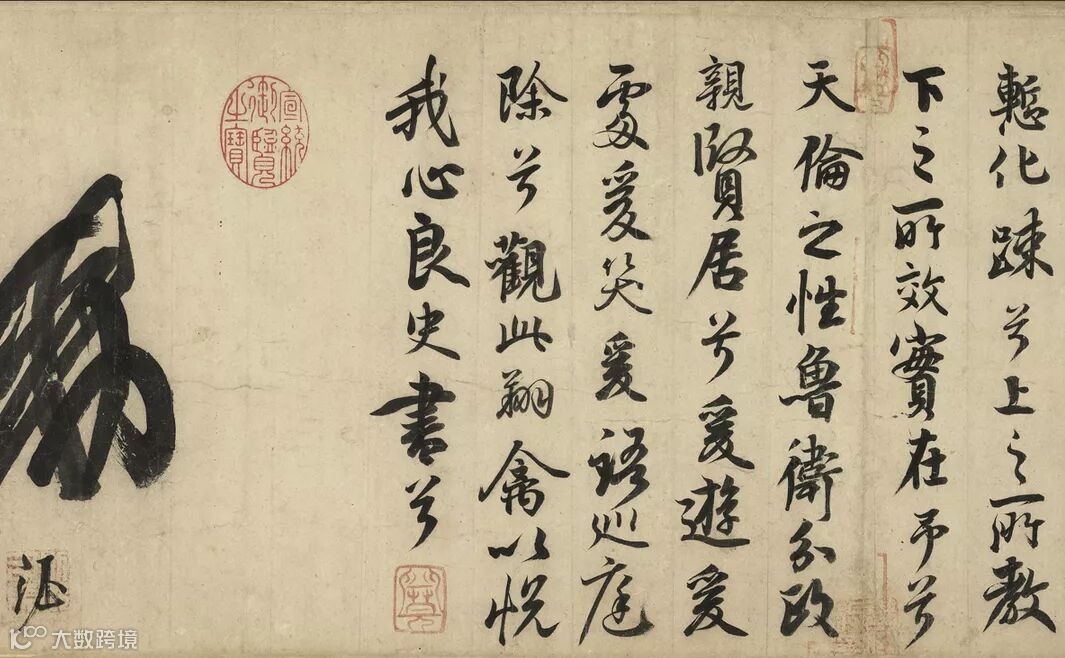 慙化踈兮上之所教
下之所效實在予兮
天倫之性魯衛分政
親賢居兮爰遊爰
處爰笑爰語巡庭
除兮觀此翔禽以悅
我心良史書兮
宣統御覽之寶
大数跨境